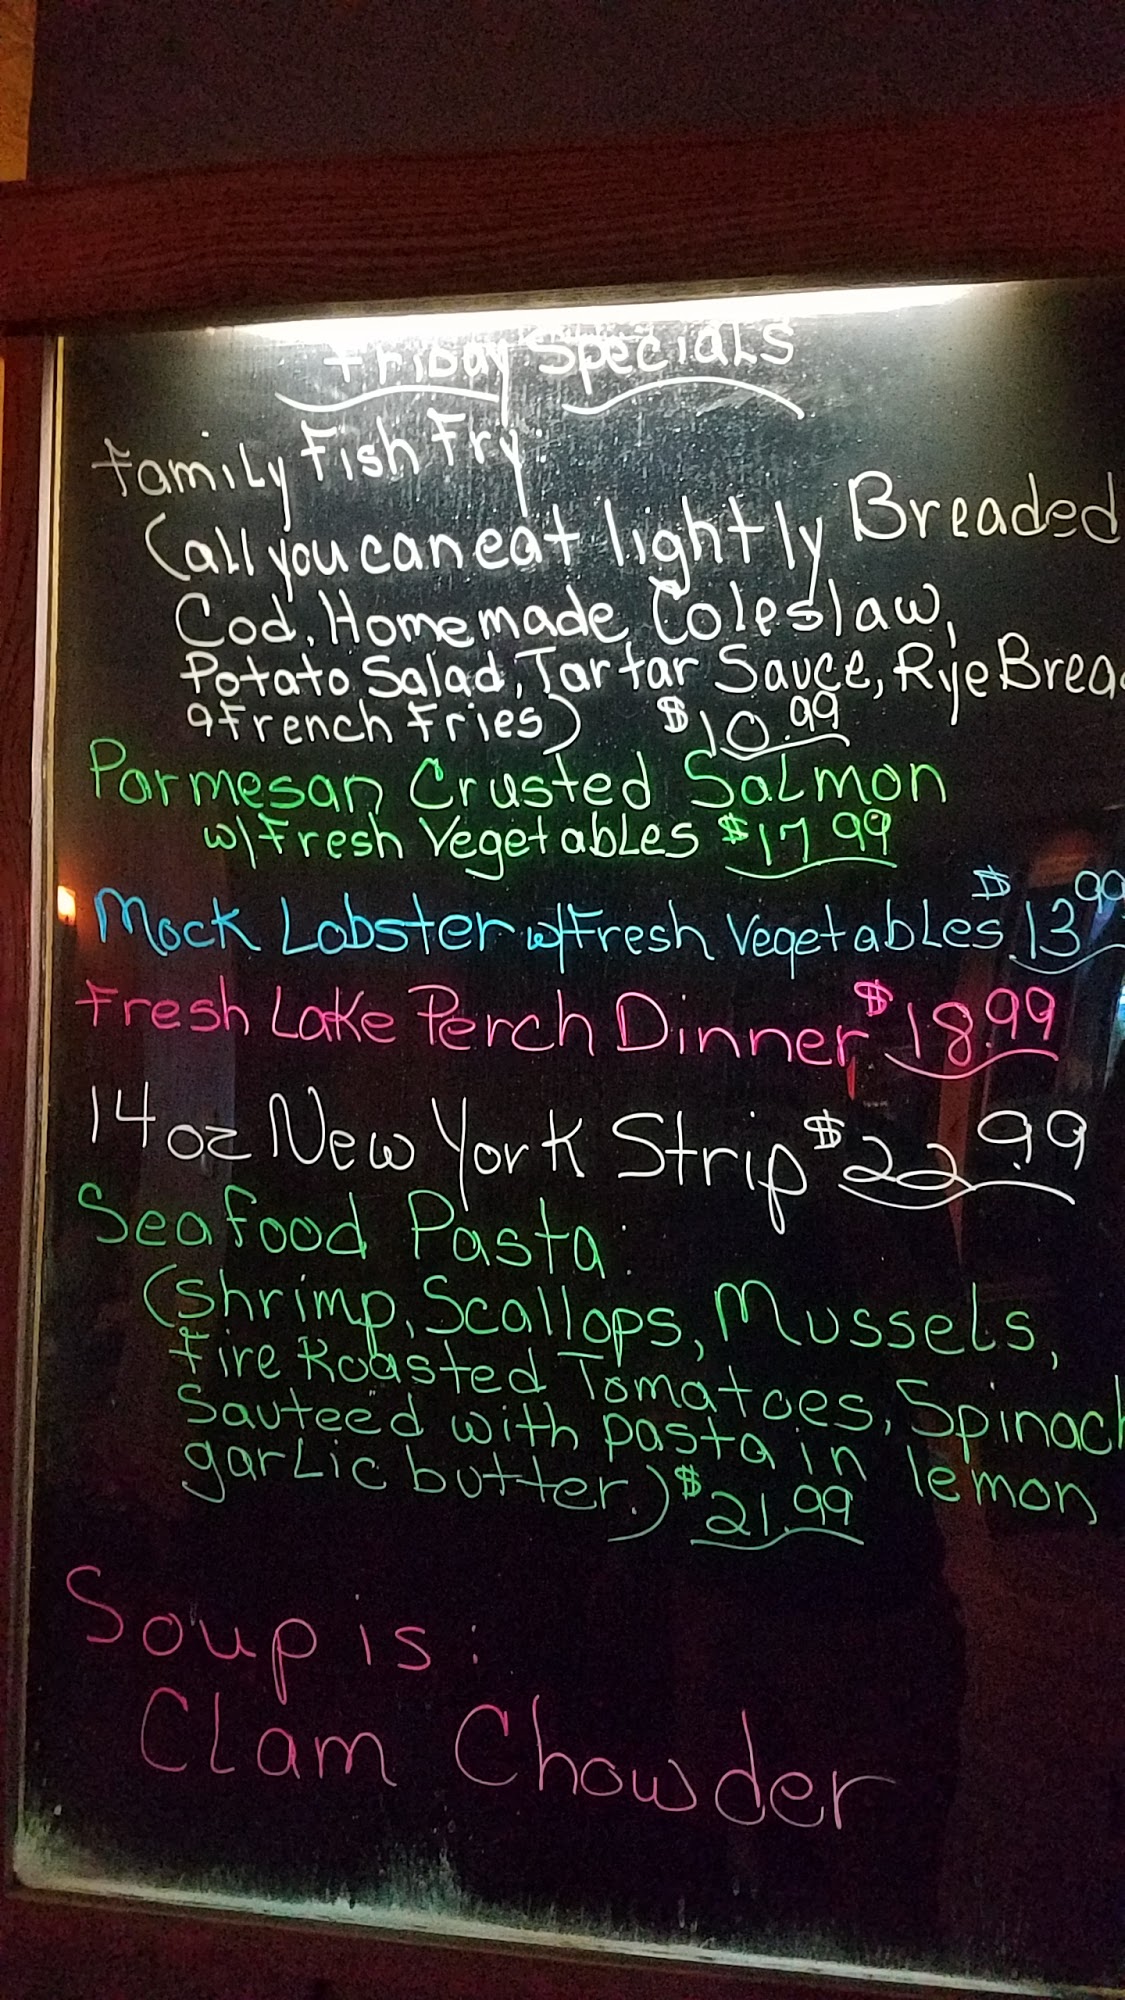 Friday Specials
Family Fish Fry:
(all you can eat lightly Breaded
Cod, Homemade Coleslaw,
Potato Salad, Tartar Sauce, Rye Brea
& French Fries) $10.99
Parmesan Crusted Salmon
w/Fresh Vegetables $17.99
Mock Lobster w/Fresh Vegetables $13.99
Fresh Lake Perch Dinner $18.99
14oz New York Strip $22.99
Seafood Pasta:
(Shrimp, Scallops, Mussels,
Fire Roasted Tomatoes, Spinach
Sauteed with pasta in lemon
garlic butter.) $21.99
Soup is:
Clam Chowder